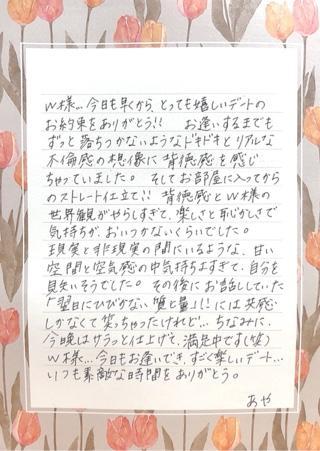 W様…今日も早くから、とっても嬉しいデートの
お約束をありがとう!! お逢いするまでも
ずっと落ちつかないようなドキドキとリアルな
不倫感の想像に背徳感を感じ
ちゃっていました。そしてお部屋に入ってから
のストレート仕立て!! 背徳感とW様の
世界観がやらしすぎて、楽しさと恥かしさで
気持ちが、おいつかないくらいでした。
現実と非現実の間にいるような、甘い
空間と空気感の中気持ちよすぎて、自分を
見失いそうでした。その後にお話ししていた
「翌日にひびかない質と量」!!には共感
しかなくて笑っちゃったけれど…ちなみに、
今晩はサラっと仕上げて、満足中です(笑)
W様…今日もお逢いでき、すごく楽しいデート…
いつも素敵な時間をありがとう。
あや